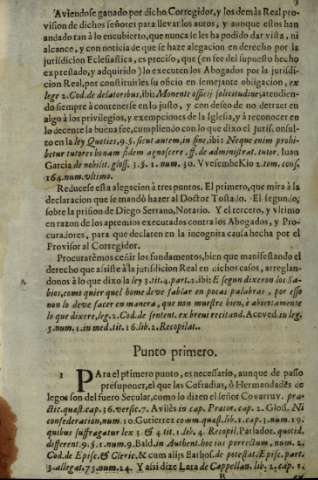 Aviendose ganado por dicho Corregidor, y los demàs Real pro-
vision de dichos señores para llevar los autos, y aunque estos han
andado tan à lo encubierto, que nunca se les ha podido dar vista, ni
alcance, y con noticia de que se haze alegacion en derecho por la
jurisdicion Eclesiastica, es preciso, que (en fee del supuesto hecho
expressado, y adquirido) lo executen los Abogados por la jurisdi-
cion Real, por constituirles su oficio en semejante obligacion, ex
lege 2. Cod. de delatoribus, ibi: Moneat officij sollicitudine, atendien-
do siempre à contenerse en lo justo, y con deseo de no detraer en
algo à los privilegios, y exempciones de la Iglesia, y à reconocer en
lo decente la buena fee, cumpliendo con lo que dixo el Jurisconsul-
to en la ley Quoties, 9. §. sicut autem, in fine, ibi: Neque enim prohi-
betur tutores bonam fidem agnoscere. ff. de administrat. tutor. Iuan
Garcia de nobilit. gloss. 3. §. 1. num. 30. VvesembeKio 2. tom. cons.
164. num. vltimo.
Reducese esta alegacion à tres puntos. El primero, que mira à la
declaracion que le mandò hazer al Doctor Tostado. El segundo,
sobre la prision de Diego Serrano, Notario. Y el tercero, y vltimo
en razon de los apremios executados contra los Abogados, y Pro-
curadores, para que declaren en la incognita causa hecha por el
Provisor al Corregidor.
Procuratèmos ceñir los fundamentos, bien que manifestando el
derecho que assiste à la jurisdicion Real en dichos casos, arreglan-
donos à lo que dixo la ley 3. tit. 4. part. 2. ibi: E segun dixeron los Sa-
bios, como quier quel home deve fablar en pocas palabras, por esso
non lo deve facer en manera, que non muestre bien, è abiertamente
lo que dixere, leg. 2. Cod. de sentent. ex brevi recitand. Aceved. in leg.
3. num. 1. in med. tit. 16. lib. 2. Recopilat.
Punto primero.
1 PAra el primero punto, es necessario, aunque de passo
presuponer, el que las Cofradias, ò Hermandades de
legos son del fuero Secular, como lo dizen el señor Covarruv. pra-
ctic. quæst. cap. 36. verse. 7. Avilès in cap. Prætor. cap. 2. Glos. Ni
confederation, num. 10. Gutierrez comm. quæst. lib. 1. cap. 1. num. 19.
quibus suffragatur lex 3. & 4. tit. 1. lib. 4. Recopil. Parlador. quotid.
different. 9. §. 1. num. 9. Bald. in Authent. hoc ius porrectum, num. 2.
Cod. de Episc. & Cleric. & cum alijs Barbos. de potestat. Episc. part.
3. allegat. 73. num. 24. Y assi dize Lara de Cappellan. lib. 2. cap. 1.